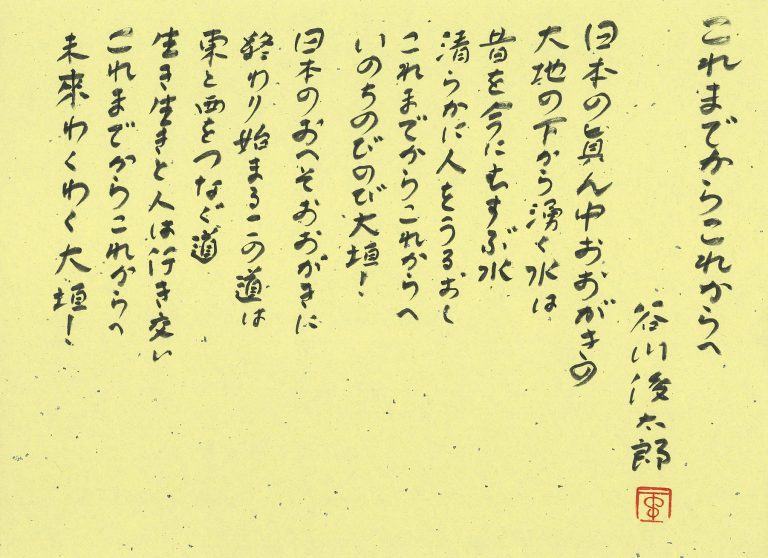 これまでからこれからへ
谷川俊太郎
日本の眞ん中おおがきの
大地の下から湧く水は
昔を今にむすぶ水
清らかに人をうるおし
これまでからこれからへ
いのちのびのび大垣！
日本のおへそおおがきに
終わり始まるこの道は
東と西をつなぐ道
生き生きと人は行き交い
これまでからこれからへ
未來わくわく大垣！